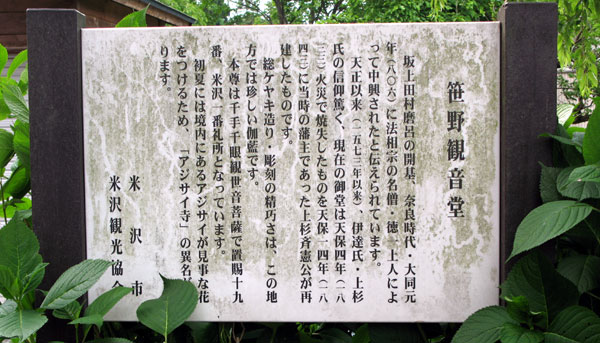 笹野観音堂
坂上田村麿呂の開基、奈良時代・大同元
年（八〇六）に法相宗の名僧・徳一上人によ
って中興されたと伝えられています。
天正以来（一五七三年以来）、伊達氏・上杉
氏の信仰篤く、現在の御堂は天保四年（一八
三三）火災で焼失したものを天保一四年（一八
四三）に当時の藩主であった上杉斉憲公が再
建したものです。
総ケヤキ造り・彫刻の精巧さは、この地
方では珍しい伽藍です。
本尊は千手千眼観世音菩薩で置賜十九
番、米沢一番札所となっています。
初夏には境内にあるアジサイが見事な花
をつけるため、「アジサイ寺」の異名が
ります。
米沢市
米沢観光協会